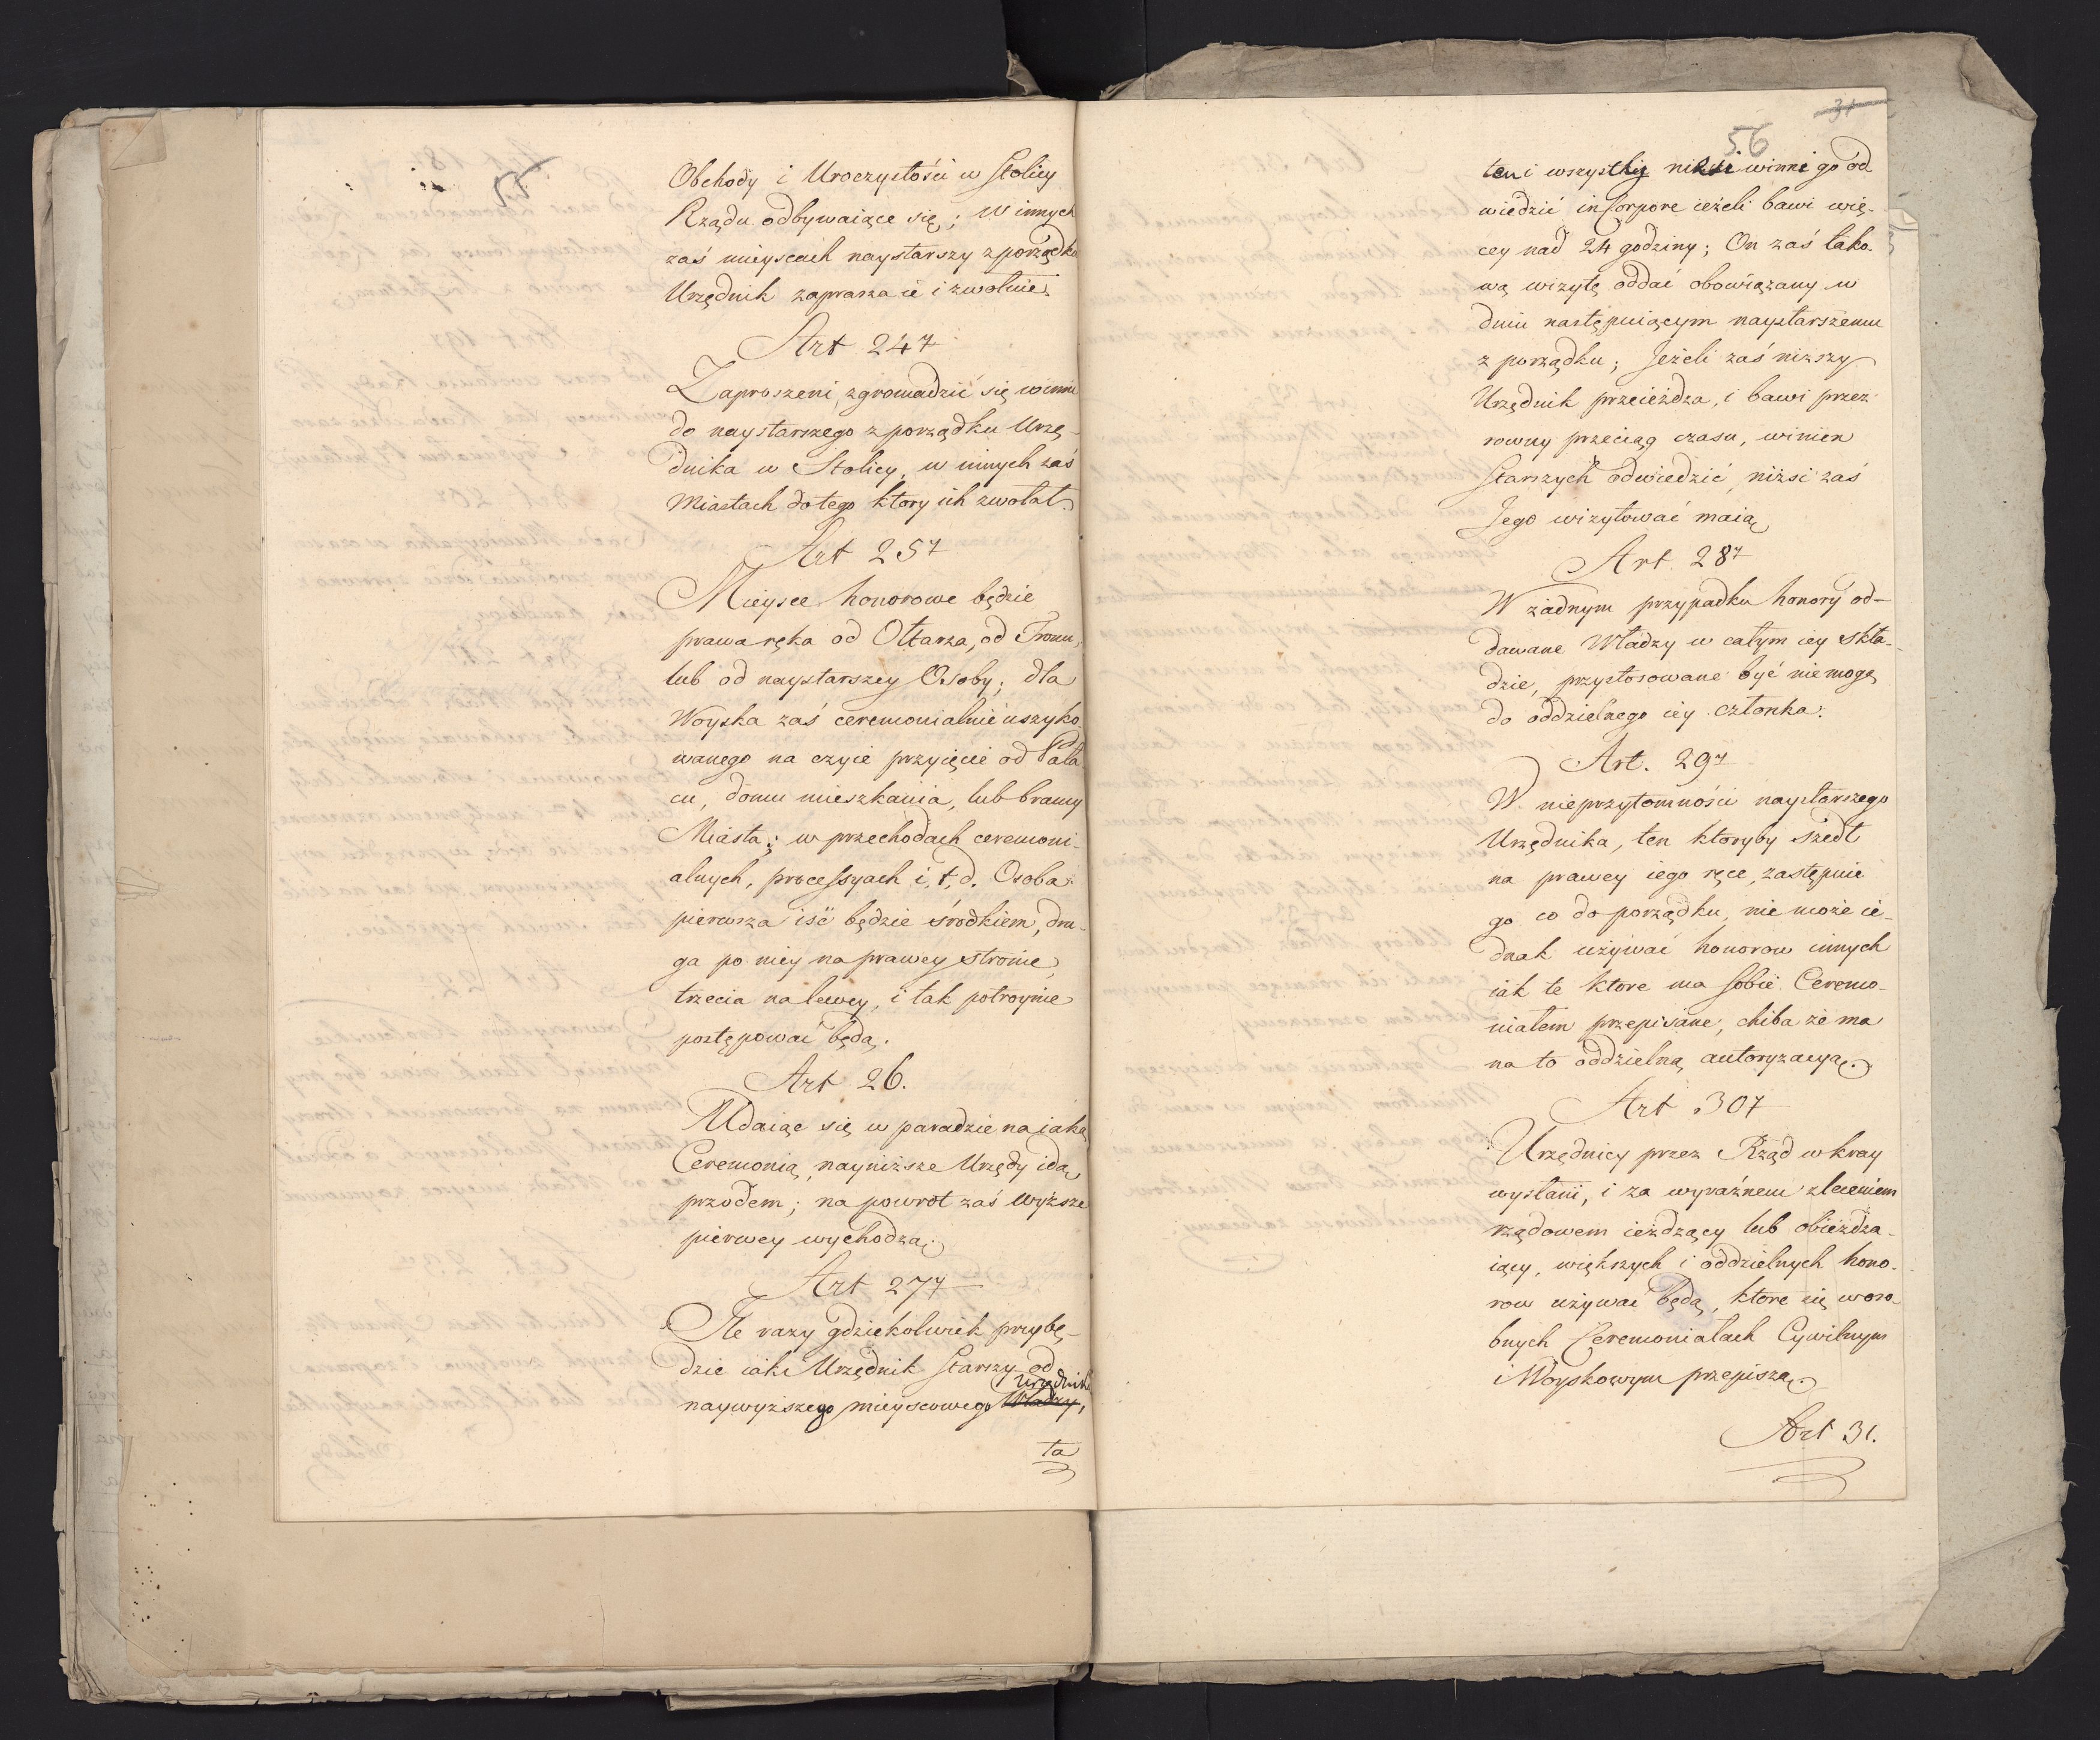 Obchody i Uroczystości w Stolicy
Rządu odbywaiące się; w innych
zaś mieyscach naystarszy z porządku
Urzędnik zaprasza ie i zwołuie.
Art 24ty
Zaproszeni, zgromadzić się winni
do naystarszego z porządku Urzę-
dnika w Stolicy, w innych zaś
Miastach do tego ktory ich zwołał.
Art 25ty
Mieysce honorowe będzie
prawa ręka od Ołtarza, od Tronu,
lub od naystarszey Osoby; dla
Woyska zaś ceremonialnie uszyko
wanego na czyie przyięcie od Pała
cu, domu mieszkania, lub bramy
Miasta; w przechodach ceremoni-
alnych, processyach i, t, d. Osoba
pierwsza iść będzie środkiem, dru-
ga po niey na prawey stronie,
trzecia na lewey, i tak potroynie
postępować będą.
Art 26.
Udaiąc się w paradzie na iaką
Ceremonią, nayniższe Urzędy idą
przodem; na powrot zaś wyższe
pierwey wychodzą.
Art 27ty
Ile razy gdziekolwiek przybę-
dzie iaki Urzędnik Starszy od
Urzędnika
naywyższego mieyscowego Władzy,
ta
31
56
ten i wszystkie niżsi winni go od
wiedzić in Corpore ieżeli bawi wię-
cey nad 24 godziny; On zaś tako-
wą wizytę oddać obowiązany w
dniu następuiącym naystarszemu
z porządku; Jeżeli zaś niższy
Urzędnik przeieżdza, i bawi przez
rowny przeciąg czasu, winien
Starszych odwiedzić, niżsi zaś
Jego wizytować maią
Art. 28ty
W żadnym przypadku honory od-
dawane Władzy w całym iey skła-
dzie, przystosowane być nie mogą
do oddzielnego iey członka.
Art. 29ty
W nieprzytomności naystarszego
Urzędnika, ten ktoryby szedł
na prawey iego ręce, zastępuie
go co do porządku, nie może ie-
dnak używać honorow innych
iak te ktore ma sobie Ceremo-
niałem przepisane, chiba że ma
na to oddzielną autoryzacyą.
Art 30ty
Urzędnicy przez Rząd w kray
wysłani, i za wyraźnem zleceniem
rządowem ieżdzący lub obieżdża-
iący, większych i oddzielnych hono-
row używać będą, ktore się w oso-
bnych Ceremoniałach Cywilnym
i Woyskowym przepiszą.
Art 31.